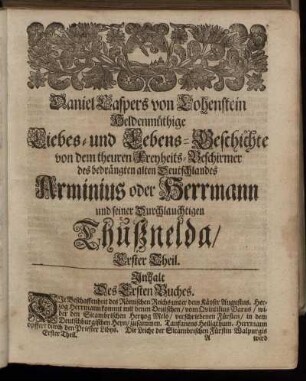 Daniel Caspers von Lohenstein
Heldenmüthige
Liebes- und Lebens-Geschichte
von dem theuren Freyheits-Beschirmer
des bedrängten alten Deutschlandes
Arminius oder Herrmann
und seiner Durchlauchtigen
Thußnelda/
Erster Theil.
Inhalt
Des Ersten Buches.
Die Beschaffenheit des Römischen Reichs unter dem Käyser Augustus. Her-
zog Herrmann kommt mit denen Deutschen/ vom Qvintilius Varus/ wi-
der den Sicambrischen Hertzog Melo/ verschriebenen Fürsten/ in dem
Deutschburgischen Heyn/ zusammen. Tanfanens Heiligthum. Herrmann
opffert durch den Priester Libys. Die Leiche der Sicambrischen Fürstin Walpurgis
Erster Theil. A wird